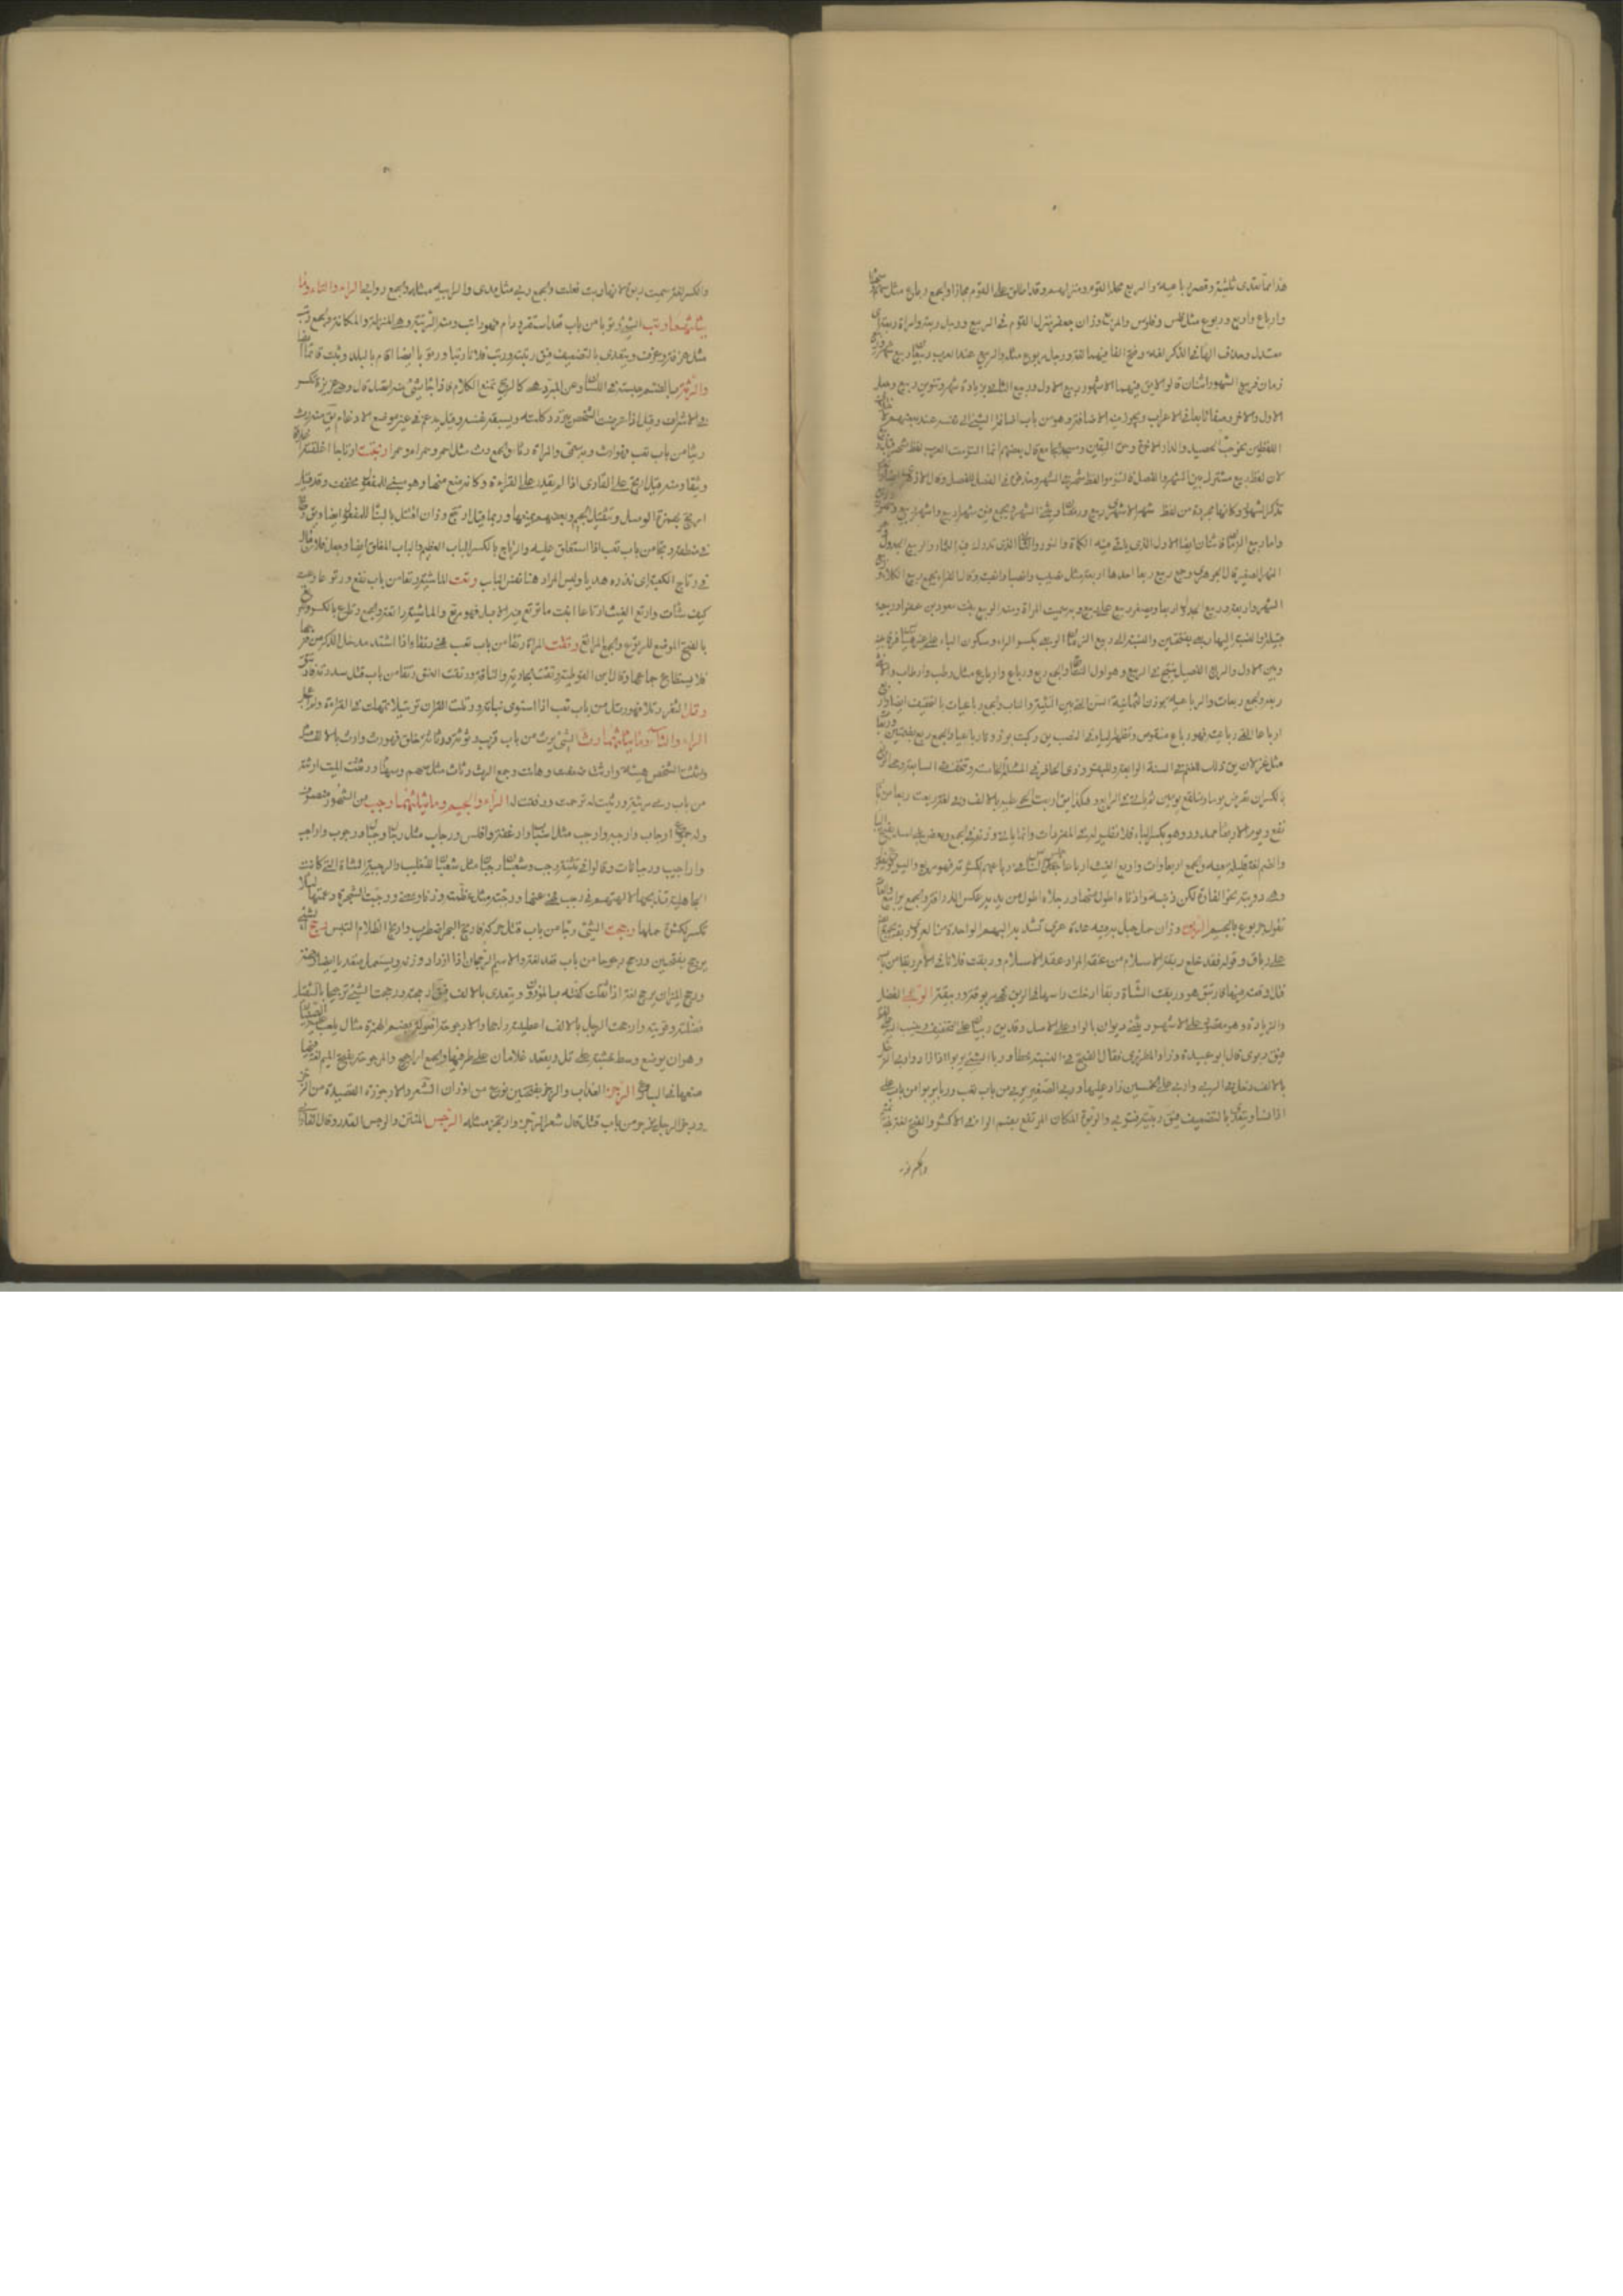 وارباع واربع وربوع مثل فلس وفلوس والمربع وزان جعفر منزل القوم في الربيع ورجل ربعة وامراة ربعة اي
معتدل وحذف الهاء في المذكر لغة وفتح الباء فيهما لغة ورجل مربوع مثله والربيع عند العرب ربيعان ربيع شهور وربيع
زمان فربيع الشهور اثنان قالوا لا يق فيهما الا شهر ربيع الاول وربيع الثاني بزيادة شهر وتنوين ربيع وجعل
الاول والاخر وصفا تابعا في الاعراب ويجوز فيه الاضافة وهو من باب اضافة الشيئ الى نفسه عند بعضهم لاختلاف
اللفظين نحو حب الحصيد والدار الاخرة وحق اليقين ومسجد الجامع قال بعضهم انما التزمت العرب لفظ شهر قبل ربيع
لان لفظ ربيع مشترك بين الشهر والفصل فالتزموا لفظ شهر في الشهر وحذفوه في الفصل للفصل وقال الازهري ايضا
تذكر الشهور كلها مجردة من لفظ شهر الا شهري ربيع ورمضان ويثنى الشهر ويجمع فيق شهرا ربيع واشهر ربيع وشهور
واما ربيع الزمان فاثنان ايضا الاول الذي ياتي فيه الكماة والنور والثاني الذي تدرك فيه الثمار والربيع الجدول وهو
النهر الصغير قال الجوهري وجمع ربيع اربعاء واربعة مثل نصيب وانصباء وانصبة وقال الفراء يجمع ربيع الكلاء و
الشهور اربعة وربيع الجدول اربعاء ويصغر ربيع على ربيع وبه سميت المراة ومنه الربيع بنت معوذ بن عفراء وربيعة
قبيلة والنسبة اليها ربعي بفتحتين والنسبة الى ربيع الزمان ربعي بكسر الراء وسكون الباء على غير قياس فرقا بينه
وبين الاول والربع الفصيل ينتج في الربيع وهو اول النتاج والجمع رباع وارباع مثل رطب وارطاب والانثى
ربعة والجمع ربعات والرباعية بوزن الثمانية السن التي بين الثنية والناب والجمع رباعيات بالتخفيف ايضا واربع
ارباعا القى رباعيته فهو رباع منقوص وتظهر الياء في النصب يق ركبت برذونا رباعيا والجمع ربع بضمتين وربعان
مثل غزلان يق ذلك للغنم في السنة الرابعة وللبقر وذي الحافر في الخامسة وللخف في السابعة وحمى الربع
بالكسر ان تعرض يوما وتقلع يومين ثم تاتي في الرابع وهكذا يق اربعت الحمى عليه بالالف وفي لغة ربعت ربعا من باب
نفع ويوم الاربعاء ممدود وهو بكسر الباء فلا نظير له في المفردات وانما ياتي وزنه في الجمع وبعض بني اسد بفتح الباء
والضم لغة قليلة فيه والجمع اربعاوات واربع الغيث ارباعا حبس الناس في رباعهم لكثرته فهو مربع واليربوع يفعول
وهي دويبة نحو الفارة لكن ذنبه واذناه اطول منها ورجلاه اطول من يديه عكس الزرافة والجمع يرابيع والعامة
تقول جربوع بالجيم الربق وزان حمل حبل فيه عدة عرى تشد به البهم الواحدة من العرى ربقة ويجمع ايضا
على رباق وقوله فقد خلع ربقة الاسلام من عنقه المراد عقد الاسلام وربقت فلانا في الامر ربقا من باب
قتل اوقعته فيها فارتبق هو وربقت الشاة ربقا ادخلت راسها في الربق فهي مربوقة وربيقة الربا الفضل
والزيادة وهو مقصور على الاشهر ويثنى ربوان بالواو على الاصل وقد يق ربيان على التخفيف وينسب اليه على لفظه
فيق ربوي قال ابو عبيدة وزاد المطرزي فقال الفتح في النسبة خطا وربا الشيئ يربوا اذا زاد واربى الرجل
بالالف دخل في الربا واربى على الخمسين زاد عليها وربى الصغير يربى من باب تعب وربا يربوا من باب علا
اذا نشا ويتعدى بالتضعيف فيق ربيته فتربى والربوة المكان المرتفع بضم الراء في الاكثر والفتح لغة بني تميم
والكسر لغة سميت ربوة لانها ربت فعلت والجمع ربى مثل مدى والرابية مثله والجمع روابي الراء والتاء وما
يثلثهما رتب الشيئ رتوبا من باب قعد استقر ودام فهو راتب ومنه الرتبة وهي المنزلة والمكانة والجمع رتب
مثل غرفة وغرف ويتعدى بالتضعيف فيق رتبته ورتب فلان رتبا ورتوبا ايضا اقام بالبلد وثبت قائما ايضا
والرتة بالضم حبسة في اللسان وعن المبرد هي كالريح تمنع الكلام فاذا جاء شيئ منه اتصل قال وهي غريزة تكثر
في الاشراف وقيل اذا عرضت للشخص تتردد كلمته ويسبقه نفسه وقيل يدغم في غير موضع الادغام يق منه رت
رتتا من باب تعب فهو ارت وبه سمي والمراة رتاء والجمع رت مثل احمر وحمراء وحمر ارتجت الباب ارتاجا اغلقته
وثيقا ومنه قيل ارتج على القاري اذا لم يقدر على القراءة وكانه منع منها وهو مبني للمفعول مخففة وقد قيل
ارتج بهمزة الوصل وتثقيل الجيم وبعضهم يمنعها وربما قيل ارتتج وزان اقتتل بالبناء للمفعول ايضا ويق رتج
في منطقه رتجا من باب تعب اذا استغلق عليه والرتاج بالكسر الباب العظيم والباب المغلق ايضا وجعل فلان ماله
في رتاج الكعبة اي نذره هديا وليس المراد هنا نفس الباب رتعت الماشية رتعا من باب نفع ورتوعا رعت
كيف شائت وارتع الغيث ارتاعا انبت ما ترتع فيه الابل فهو مرتع والماشية راتعة والجمع رتاع بالكسر والمرتع
بالفتح الموضع للرتوع والجمع المراتع رتقت المراة رتقا من باب تعب فهي رتقاء اذا انسد مدخل الذكر من فرجها
فلا يستطاع جماعها وقال ابن القوطية رتقت الجارية والناقة ورتقت الفتق رتقا من باب قتل سددته فارتتق
رتل الثغر رتلا فهو رتل من باب تعب اذا استوى نباته ورتلت القران ترتيلا تمهلت في القراءة ولم اعجل
الراء والثاء وما يثلثهما رث الشيئ يرث من باب قرب رثوثة ورثاثة خلق فهو رث وارث بالالف مثله
ورثت هيئة الشخص وارثت ضعفت وهانت وجمع الرث رثاث مثل سهم وسهام ورثيت الميت ارثيه
من باب رمى مرثية ورثيت له ترحمت ورققت له الراء والجيم وما يثلثهما رجب من الشهور منصرف
وله جموع ارجاب وارجبة وارجب مثل اسباب وارغفة وافلس ورجاب مثل جبال ورجوب واراجب
واراجيب ورجبانات وقالوا في تثنية رجب وشعبان رجبان مثل شعبان للتغليب والرجبية الشاة التي كانت
الجاهلية تذبحها لالهتهم في رجب فنهي عنها ورجبته مثل عظمته وزنا ومعنى ورجبت الشجرة دعمتها لئلا
تكسر لكثرة حملها رججت الشيئ رجا من باب قتل حركته فارتج هو وارتج البحر اضطرب وارتج الظلام التبس رجح الشيئ
يرجح بفتحتين ورجح رجوحا من باب قعد لغة والاسم الرجحان اذا زاد وزنه ويستعمل متعديا ايضا فيق رجحته
ورجح الميزان يرجح لغة اذا ثقلت كفته بالموزون ويتعدى بالالف فيق ارجحته ورجحت الشيئ ترجيحا بالتثقيل
فضلته وقويته وارجحت الرجل بالالف اعطيته راجحا والارجوحة افعولة بضم الهمزة مثال يلعب عليه الصبيان
وهو ان يوضع وسط خشبة على تل ويقعد غلامان على طرفيها والجمع اراجيح والمرجوحة بفتح الميم لغة فيها
ومنعها في البارع الرجز العذاب والرجز بفتحتين نوع من اوزان الشعر والارجوزة القصيدة من الرجز
ورجز الرجل يرجز من باب قتل قال شعر الرجز وارتجز مثله الرجس النتن والرجس القذر وقال الفارابي